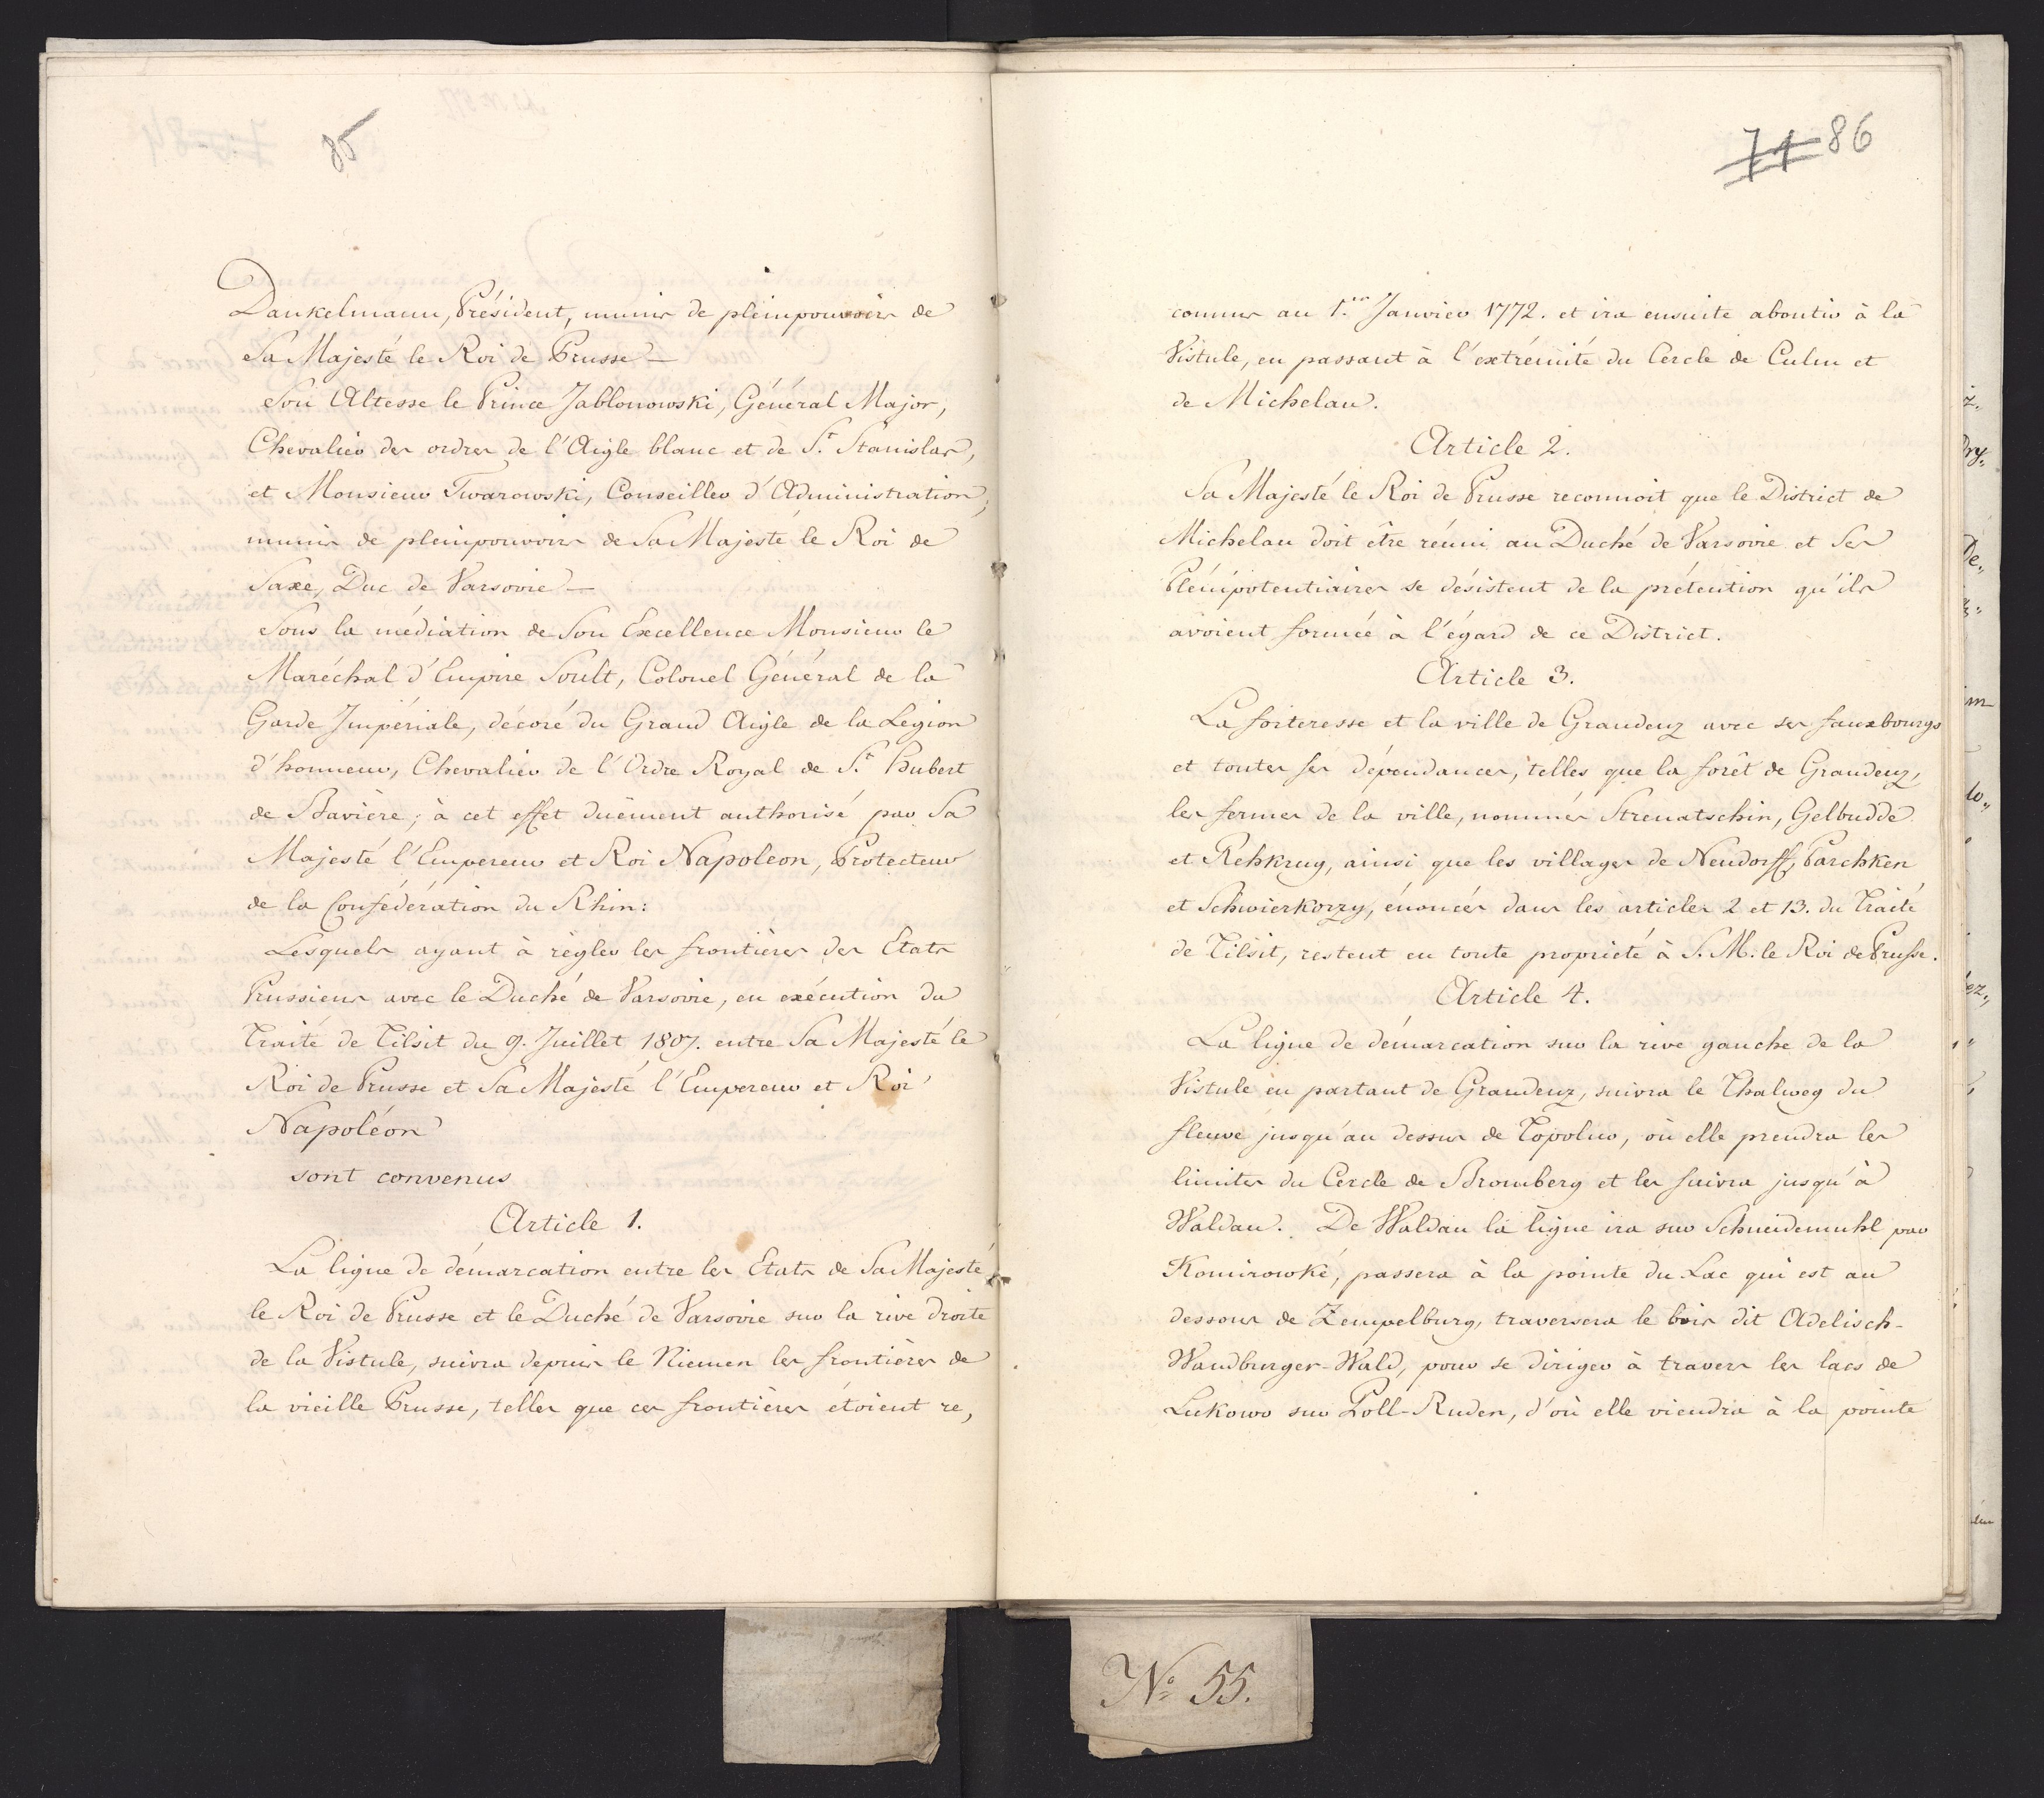 85
Dankelmann, Président, munis de pleinpouvoirs de
Sa Majesté le Roi de Prusse —
Son Altesse le Prince Jablonowski, Général Major,
Chevalier des ordres de l'Aigle blanc et de St. Stanislas,
et Monsieur Twarowski, Conseiller d'Administration,
munis de pleinpouvoirs de Sa Majesté le Roi de
Saxe, Duc de Varsovie —
Sous la médiation de Son Excellence Monsieur le
Maréchal d'Empire Soult, Colonel Général de la
Garde Impériale, décoré du Grand Aigle de la Legion
d'honneur, Chevalier de l'Ordre Royal de St. Hubert
de Bavière; à cet effet duëment authorisé par Sa
Majesté l'Empereur et Roi Napoleon, Protecteur
de la Confédération du Rhin:
Lesquels ayant à règler les frontières des Etats
Prussiens avec le Duché de Varsovie, en exécution du
Traité de Tilsit du 9. Juillet 1807. entre Sa Majesté le
Roi de Prusse et Sa Majesté l'Empereur et Roi
Napoléon
sont convenus
Article 1.
La ligne de démarcation entre les Etats de Sa Majesté
le Roi de Prusse et le Duché de Varsovie sur la rive droite
de la Vistule, suivra depuis le Niemen les frontières de
la vieille Prusse, telles que ces frontières étoient re,
71 86
connus au 1.er Janvier 1772. et ira ensuite aboutir à la
Vistule, en passant à l'extrémité du Cercle de Culm et
de Michelau.
Article 2.
Sa Majesté le Roi de Prusse reconnoit que le District de
Michelau doit être réuni au Duché de Varsovie et Ses
Plénipotentiaires se désistent de la prétention qu'ils
avoient formée à l'égard de ce District.
Article 3.
La forteresse et la ville de Graudenz avec ses fauxbourgs
et toutes ses dépendances, telles que la forêt de Graudenz,
les fermes de la ville, nommés Strenatschin, Gelbudde
et Rehkrug, ainsi que les villages de Neudorff, Parchken
et Schwierkorzy, énoncés dans les articles 2 et 13. du Traité
de Tilsit, restent en toute propriété à S. M. le Roi de Prusse.
Article 4.
La ligne de démarcation sur la rive gauche de la
Vistule en partant de Graudenz, suivra le Thalweg du
fleuve jusqu'au dessus de Topolno, où elle prendra les
limites du Cercle de Bromberg et les suivra jusqu'à
Waldau. De Waldau la ligne ira sur Schneidemuhl par
Komirowké, passera à la pointe du Lac qui est au
dessous de Zempelburg, traversera le bois dit Adelisch-
Wandburger-Wald, pour se diriger à travers les lacs de
Lukowo sur Poll-Ruden, d'où elle viendra à la pointe
No 55.